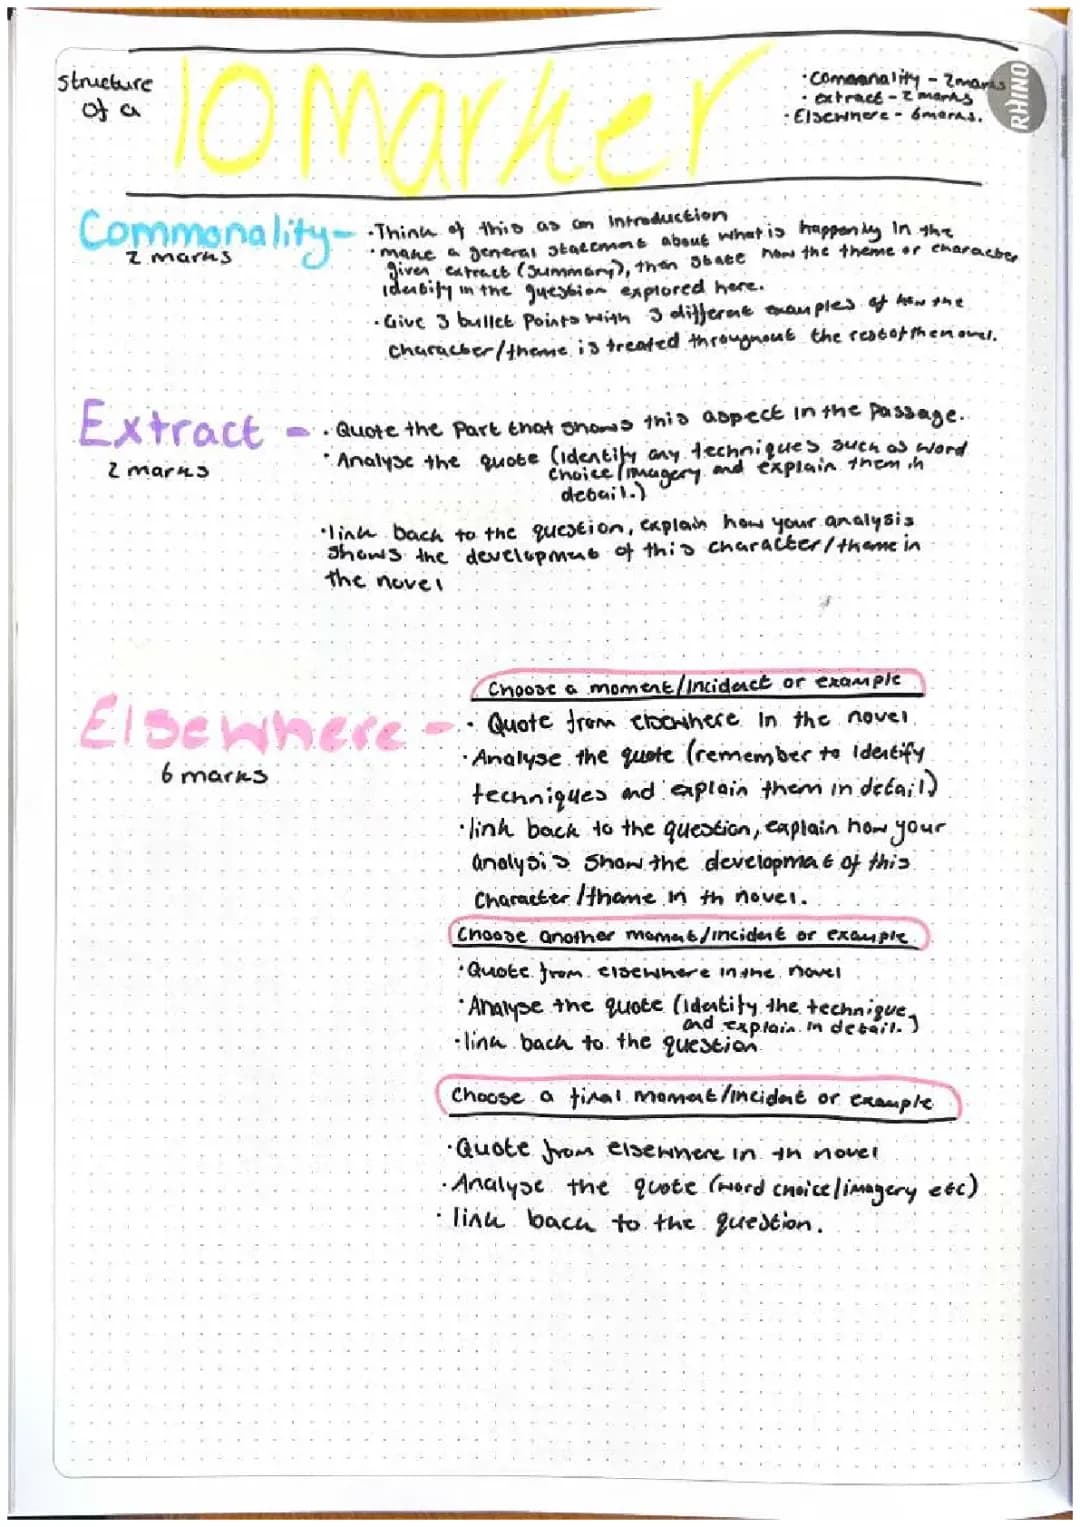 structure
of a
10 Marker
· Commonality - 2marks
· extract - 2 marks
· Elsewhere - 6marks.
RHINO
Commonality -
2 marks
· Think of this as an Introduction
· make a general statement about what is happening in the
given extract (summary), then state how the theme or character
identify in the question explored here.
· Give 3 bullet Points with 3 different examples of how the
character/theme is treated throughout the rest of the novel.
Extract -
2 marks
· Quote the Part that shows this aspect in the Passage.
· Analyse the quote (identify any techniques such as word
choice/imagery and explain them in
detail.)
· link back to the question, explain how your analysis
shows the development of this character/theme in
the novel
Elsewhere -
6 marks
Choose a moment/Incident or example
· Quote from elsewhere in the novel
· Analyse the quote (remember to identify
techniques and explain them in detail)
· link back to the question, explain how your
analysis show the development of this
Character/theme in th novel.
Choose another moment/incident or example
· Quote from elsewhere in the novel
· Analyse the quote (identify the technique,
and explain in detail.)
· link back to the question
Choose a final moment/incident or example
· Quote from elsewhere in th novel
· Analyse the quote (word choice/imagery etc)
· link back to the question.